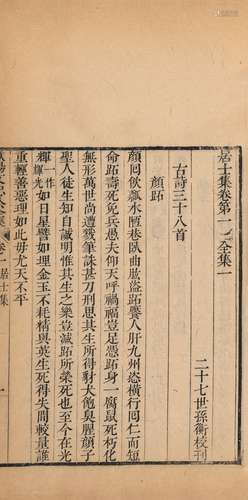 居士集卷第一　全集一
二十七世孫衡校刊
古詩三十八首
顏跖
顏回飲瓢水陋巷臥曲肱盜跖饜人肝九州恣橫行回仁而短
命跖壽死免兵愚夫仰天呼禍福豈足憑跖身一腐鼠死朽化
無形萬世尚遭戮筆誅甚刀刑思其生所得豺犬飽臭腥顏子
聖人徒生知自誠明惟其生之樂豈減跖所榮死也至今在光
輝一作輝光如日星譬如埋金玉不耗精與英生死得失間較量誰
重輕善惡理如此毋尤天不平
卷一　居士集　一